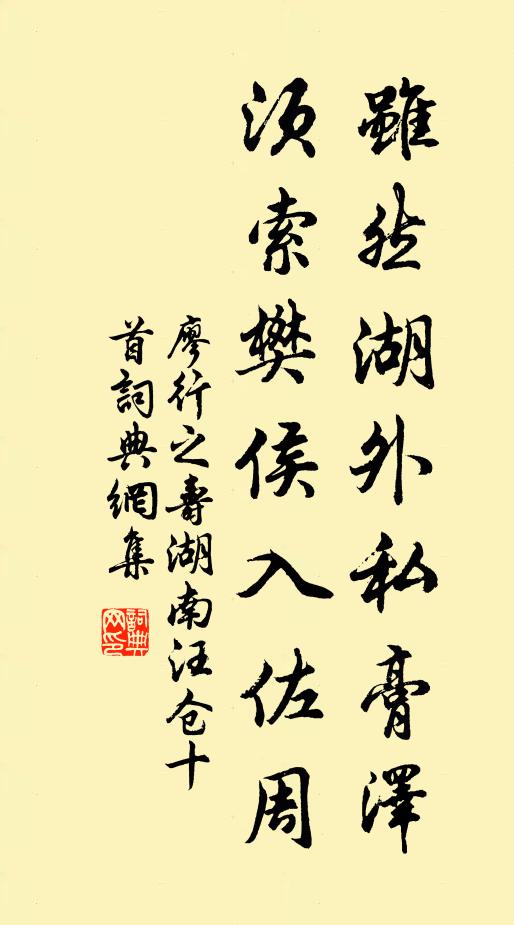 雖然湖外私膏澤
須索樊侯入佐周
廖行之壽湖南汪仓十
首詞典網集
詞典
网印